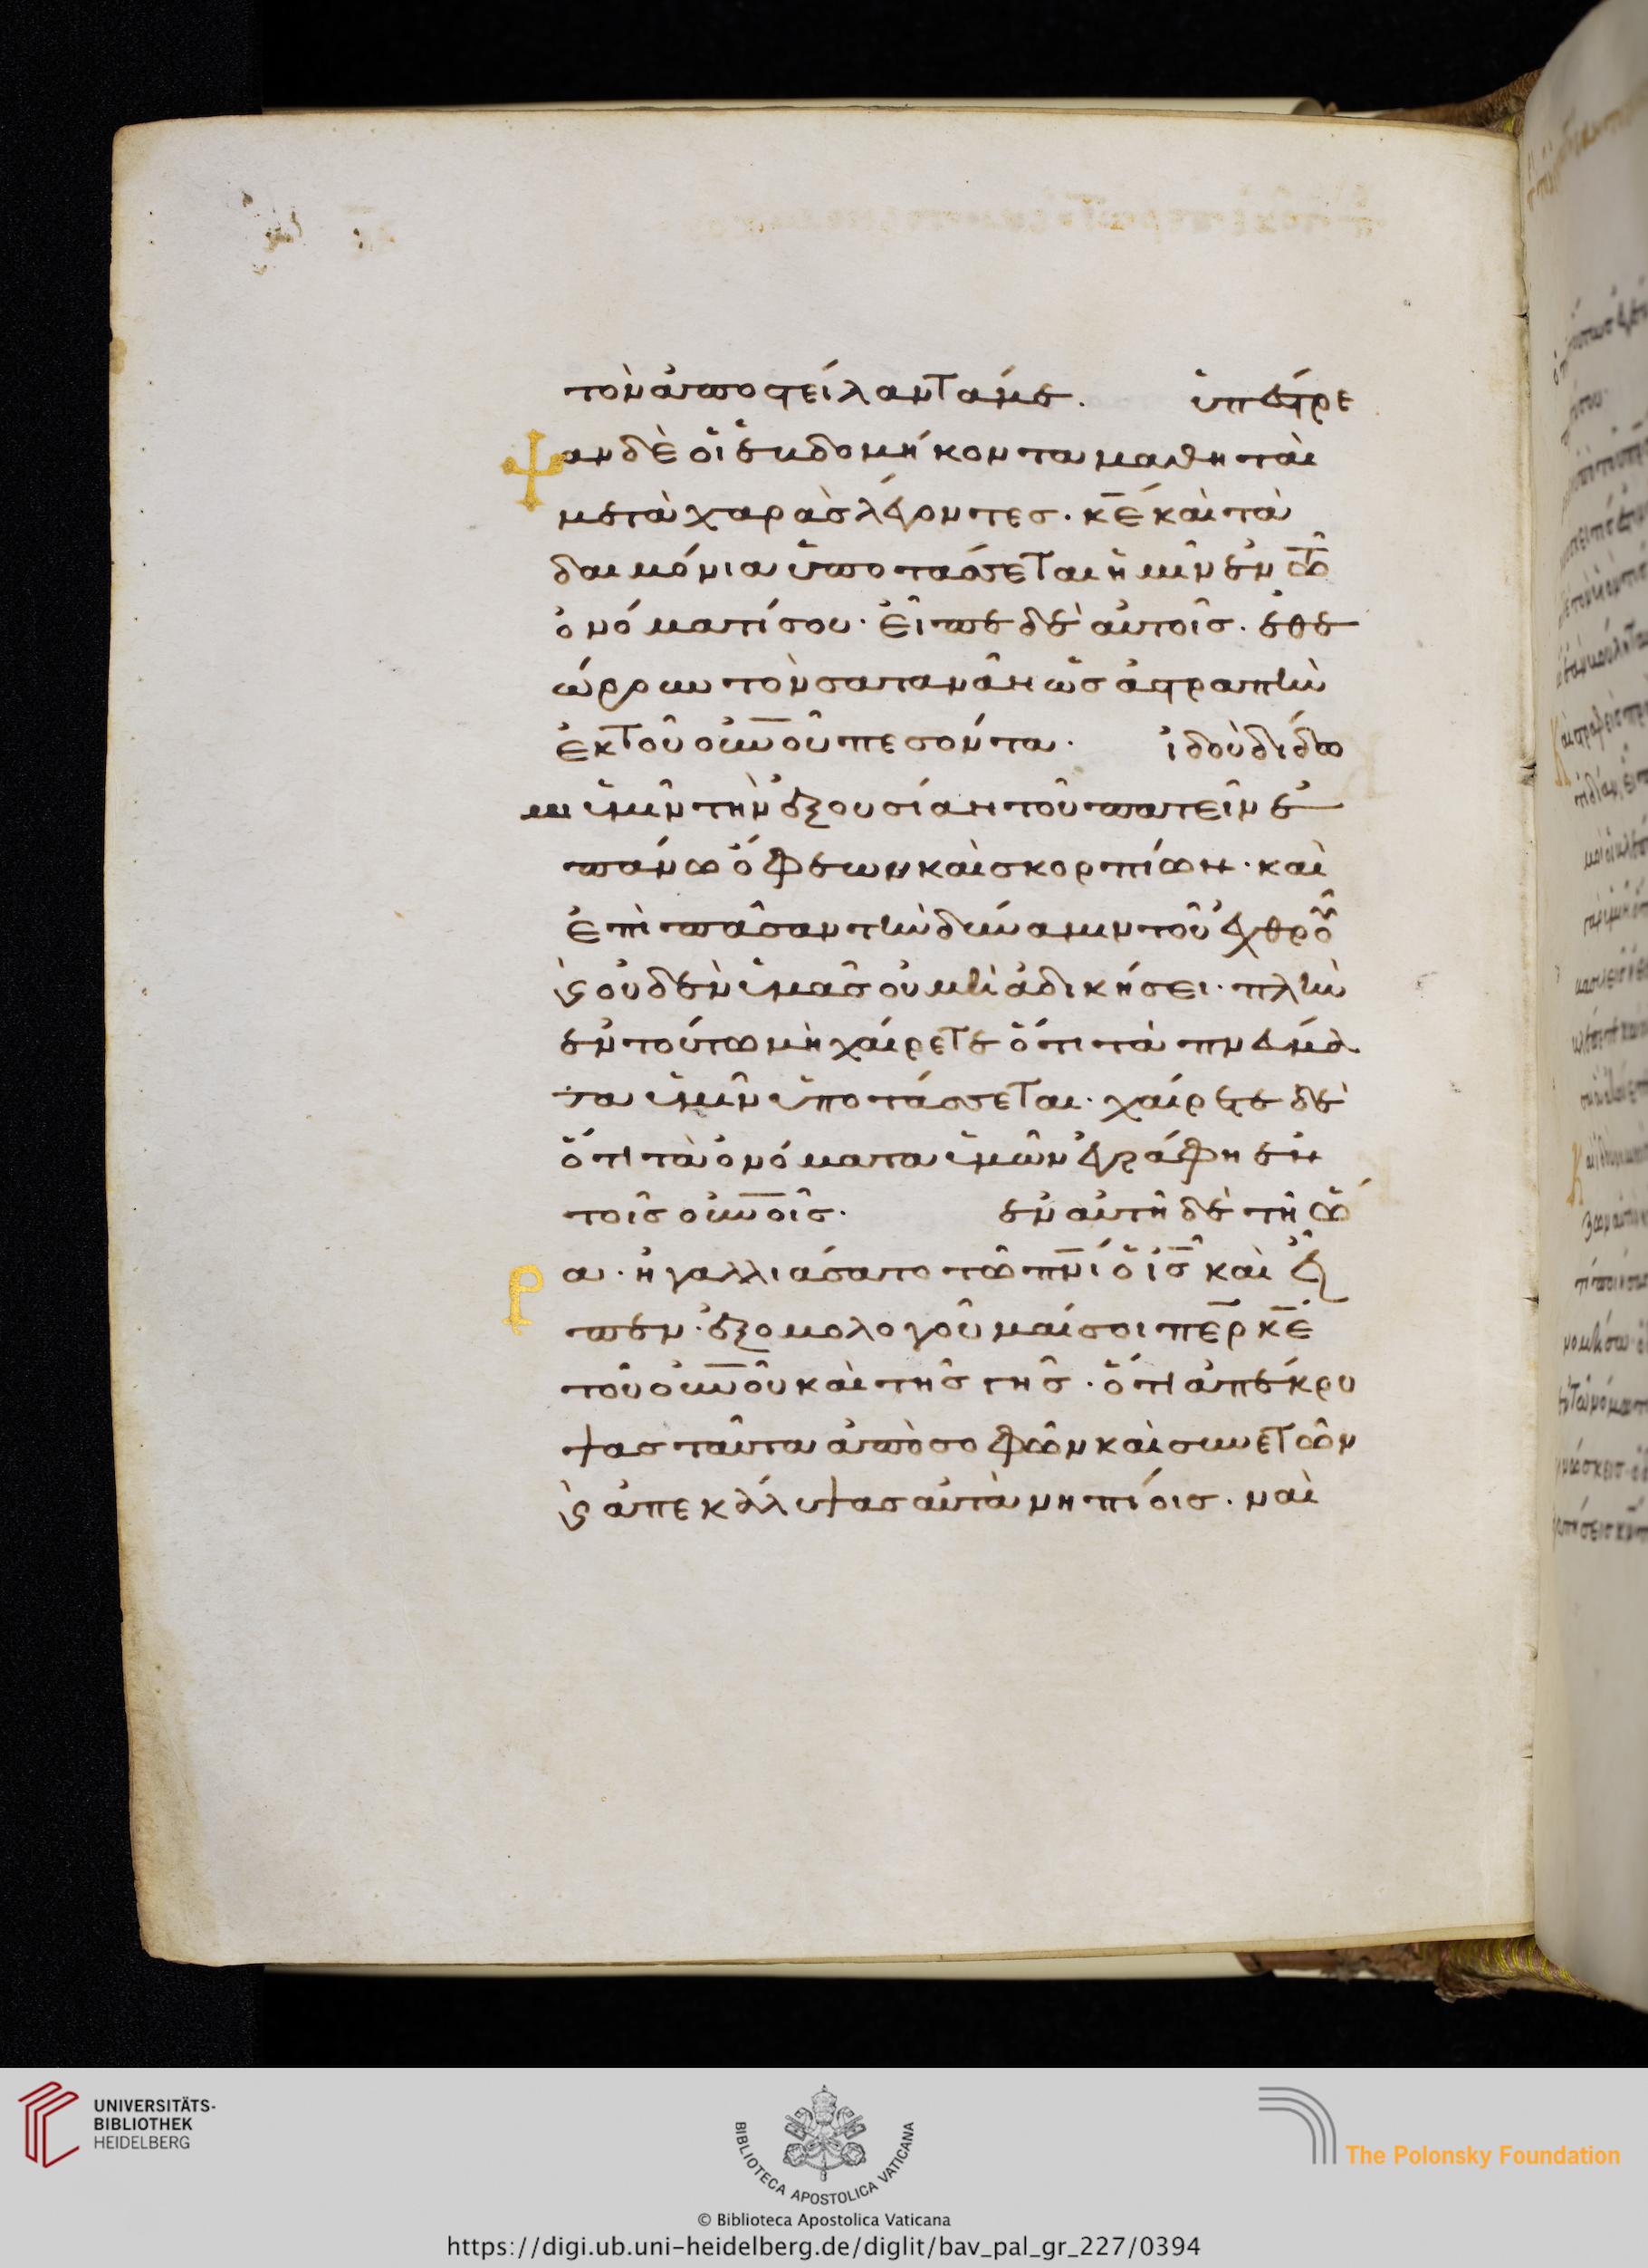 τὸν ἀποστείλαντά με. ὑπέστρε
ψαν δὲ οἱ ἑβδομήκοντα μαθηταὶ
μετὰ χαρᾶς λέγοντες. κ̅ε̅ καὶ τὰ
δαιμόνια ὑποτάσσεται ἡμῖν ἐν τῶ
ὀνόματί σου. εἶπε δὲ αὐτοῖς. ἐθε
ώρουν τὸν σατανᾶν ὡς ἀστραπὴν
ἐκ τοῦ ο̅υ̅ν̅ο̅ῦ πεσόντα. ἰδοὺ δίδω
μι ὑμῖν τὴν ἐξουσίαν τοῦ πατεῖν ἐ
πάνω ὄφεων καὶ σκορπίων. καὶ
ἐπὶ πᾶσαν τὴν δύναμιν τοῦ ἐχθροῦ
ϗ οὐδὲν ὑμᾶς οὐ μὴ ἀδικήσει. πλὴν
ἐν τούτω μὴ χαίρετε ὅτι τὰ πνεύμα
τα ὑμῖν ὑποτάσσεται. χαίρετε δὲ
ὅτι τὰ ὀνόματα ὑμῶν ἐγράφη ἐν
τοῖς ο̅υ̅ν̅οῖς. ἐν αὐτῆ δὲ τῆ ὥ
ρα. ἠγαλλιάσατο τῶ π̅ν̅ι̅ ὁ ι̅ς̅ καὶ εἶ
πεν. ἐξομολογοῦμαί σοι π̅ε̅ρ̅ κ̅ε̅
τοῦ ο̅υ̅ν̅οῦ καὶ τῆς γῆς. ὅτι ἀπέκρυ
ψας ταῦτα ἀπὸ σοφῶν καὶ συνετῶν
ϗ ἀπεκάλυψας αὐτὰ νηπίοις. ναὶ
UNIVERSITÄTS-
BIBLIOTHEK
HEIDELBERG
BIBLIOTECA APOSTOLICA VATICANA
The Polonsky Foundation
© Biblioteca Apostolica Vaticana
https://digi.ub.uni-heidelberg.de/diglit/bav_pal_gr_227/0394